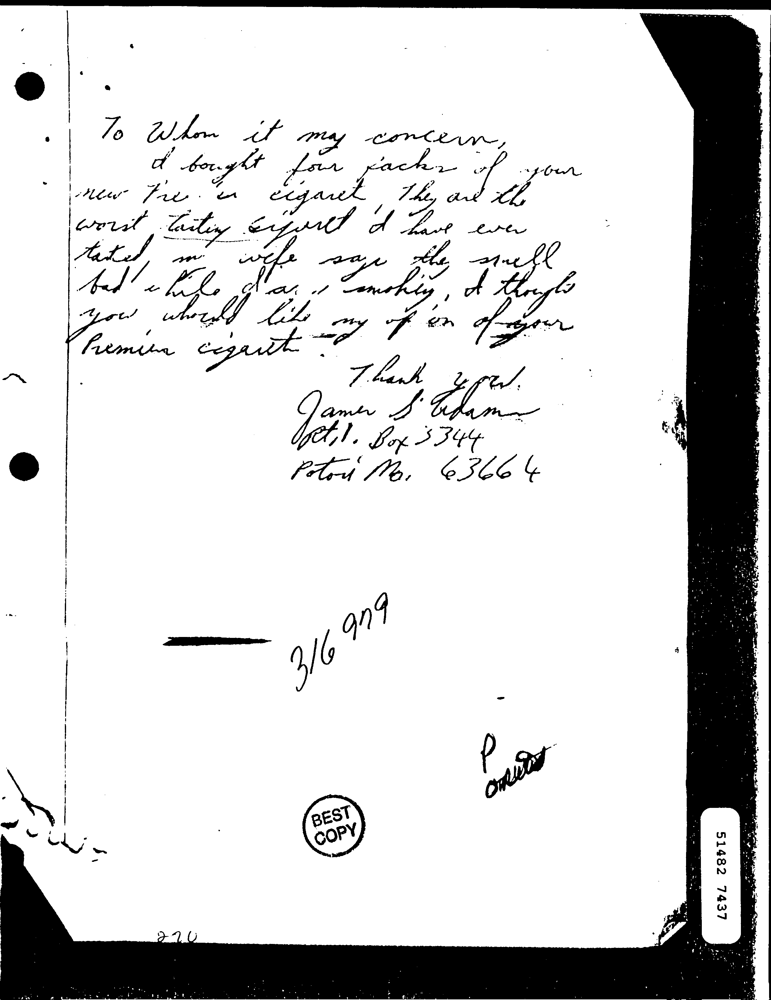 To Whom it my concern,
I bought four packs of your
new cigaret, They are the
worst tasting I have ever
tasted, wife says they smell
bad while smoking, I thought
you whould like my of your
Premier cigarett.
Thank you.
James S.
Rt,1. Box 3344
Potosi Mo. 63664
316 979
P
BEST
COPY
51482 7437
270